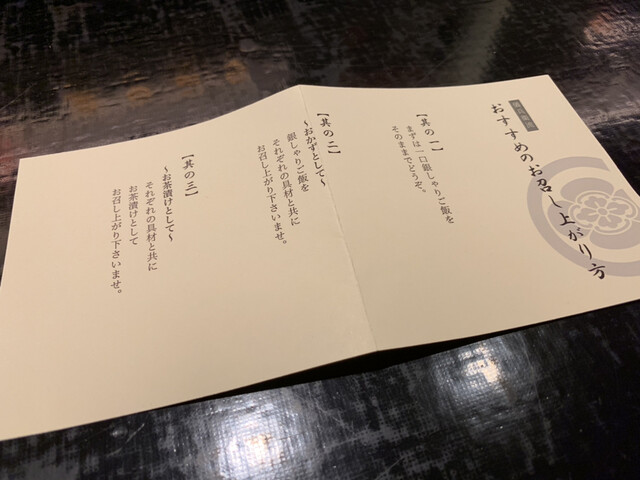 おすすめのお召し上がり方
【其の一】
まずは一口銀しゃりご飯を
そのままでどうぞ。
【其の二】
～おかずとして～
銀しゃりご飯を
それぞれの具材と共に
お召し上がり下さいませ。
【其の三】
～お茶漬けとして～
それぞれの具材と共に
お茶漬けとして
お召し上がり下さいませ。